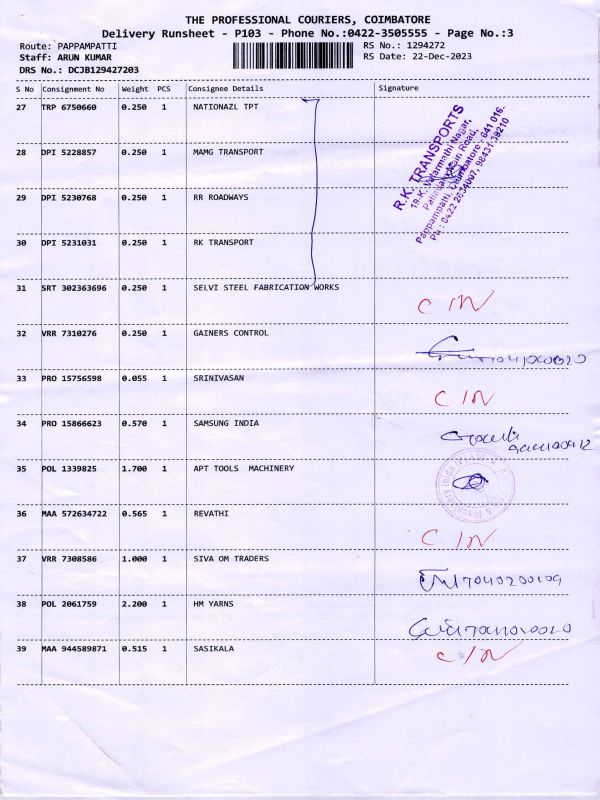 THE PROFESSIONAL COURIERS, COIMBATORE
Delivery Runsheet - P103 - Phone No.:0422-3505555 - Page No.:3
Route: PAPPAMPATTI RS No.: 1294272
Staff: ARUN KUMAR RS Date: 22-Dec-2023
DRS No.: DCJB129427203
S No Consignment No Weight PCS Consignee Details Signature
27 TRP 6750660 0.250 1 NATIONAZL TPT
28 DPI 5228857 0.250 1 MAMG TRANSPORT
29 DPI 5230768 0.250 1 RR ROADWAYS
30 DPI 5231031 0.250 1 RK TRANSPORT
R.K. TRANSPORTS
Pappampatti, Coimbatore - 641 016.
Ph : 0422 2634007, 98431 39210
31 SRT 302363696 0.250 1 SELVI STEEL FABRICATION WORKS C/N
32 VRR 7310276 0.250 1 GAINERS CONTROL
33 PRO 15756598 0.055 1 SRINIVASAN C/N
34 PRO 15866623 0.570 1 SAMSUNG INDIA
35 POL 1339825 1.700 1 APT TOOLS MACHINERY
36 MAA 572634722 0.565 1 REVATHI C/N
37 VRR 7308586 1.000 1 SIVA OM TRADERS
38 POL 2061759 2.200 1 HM YARNS
39 MAA 944589871 0.515 1 SASIKALA C/N